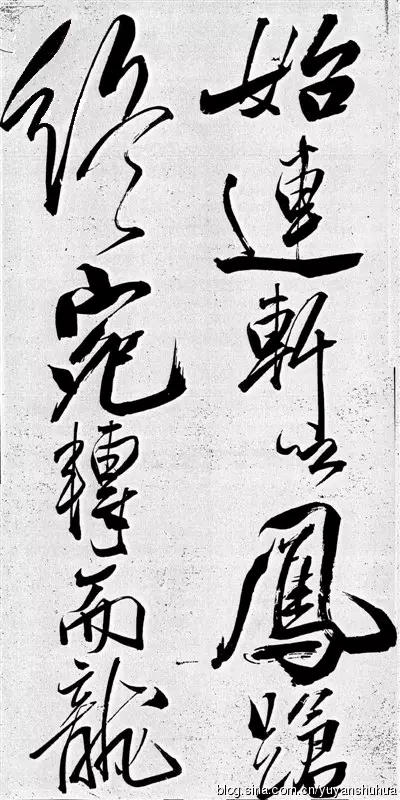 始連軒以鳳蹌
終宛轉而龍
blog.sina.com.cn/yuyanshuhua